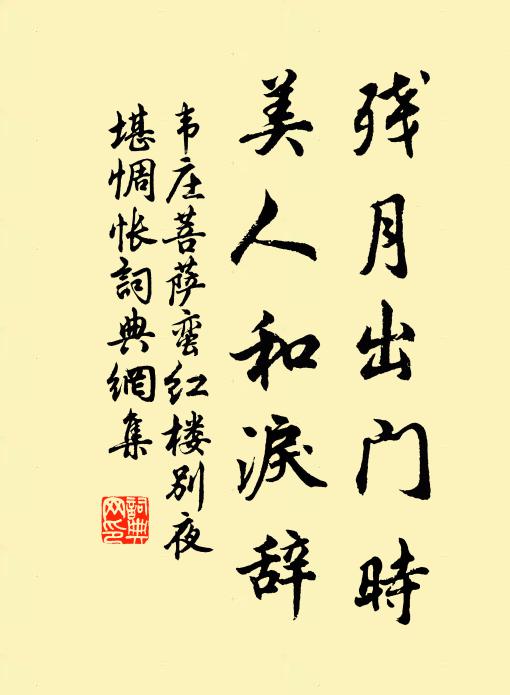 残月出门時
美人和淚辞
韦庄菩萨蛮红楼别夜
堪惆怅詞典網集
詞典
网印